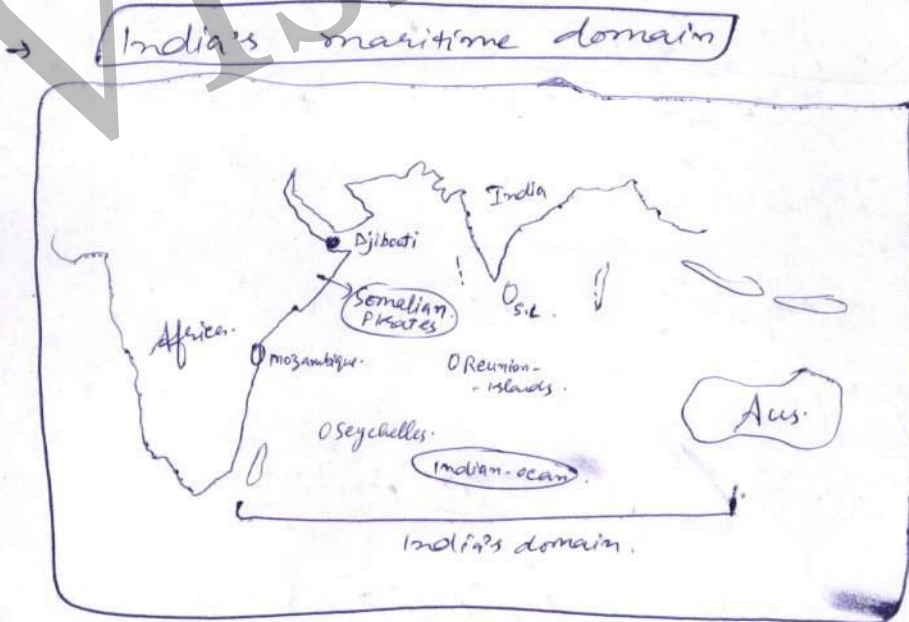 → India's maritime domain
India
Djibouti
Somalian
Pirates
S.L.
Africa.
Mozambique.
Reunion-
- islands.
Aus.
Seychelles.
Indian-ocan.
India's domain.